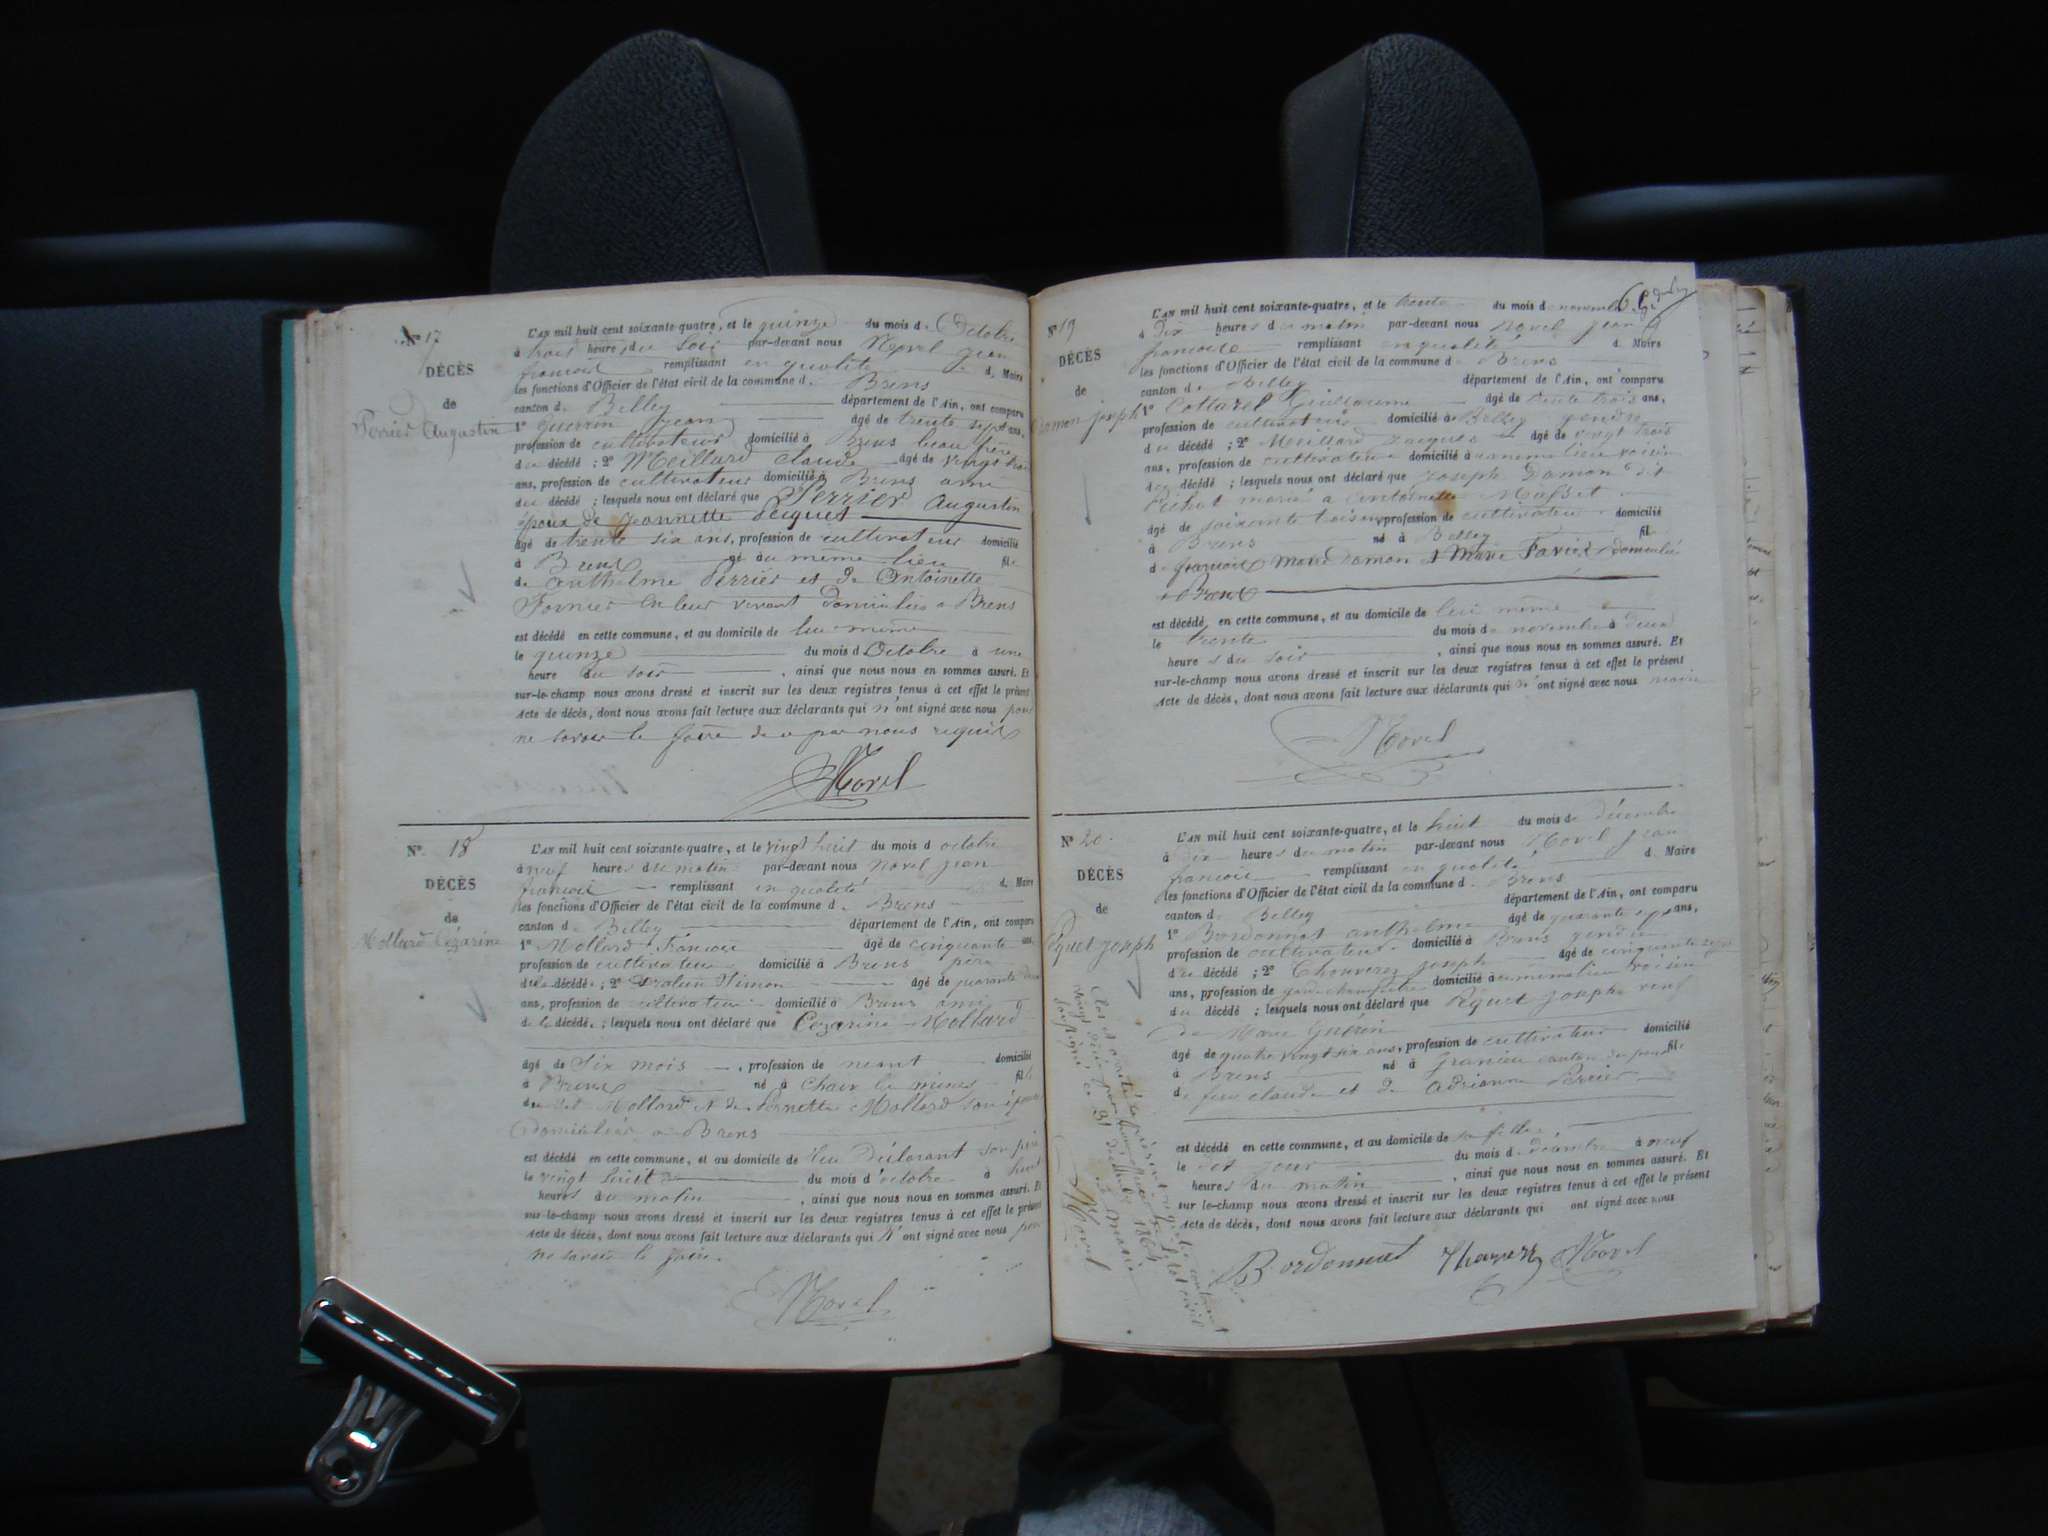 N° 17
DÉCÈS
de
Perrier Augustin
L'AN mil huit cent soixante-quatre, et le quinze du mois d Octobre
à trois heures du soir par-devant nous Novel Jean
francois remplissant en qualité d Maire
les fonctions d'Officier de l'état civil de la commune d Brens
canton d Belley département de l'Ain, ont comparu
1° Guerrin Jean âgé de trente sept ans,
profession de cultivateur domicilié à Brens beau frère
du décédé ; 2° Meillard Claude âgé de vingt trois
ans, profession de cultivateur domicilié à Brens ami
du décédé ; lesquels nous ont déclaré que Perrier Augustin
époux de Jeannette Pequet
âgé de trente six ans, profession de cultivateur domicilié
à Brens né au même lieu fil
d anthelme Perrier et de Antoinette
Fornier en leur vivant domiciliés a Brens
est décédé en cette commune, et au domicile de lui même
le quinze du mois d Octobre à une
heure du soir , ainsi que nous nous en sommes assuré. Et
sur-le-champ nous avons dressé et inscrit sur les deux registres tenus à cet effet le présent
Acte de décès, dont nous avons fait lecture aux déclarants qui n'ont signé avec nous pour
ne savoir le faire de ce par nous requis
Novel
N° 18
DÉCÈS
de
Mollard Cézarine
L'AN mil huit cent soixante-quatre, et le vingt huit du mois d octobre
à neuf heures du matin par-devant nous Novel Jean
francois remplissant en qualité d Maire
les fonctions d'Officier de l'état civil de la commune d Brens
canton d Belley département de l'Ain, ont comparu
1° Mollard Francois âgé de cinquante ans,
profession de cultivateur domicilié à Brens père
de la décédée ; 2° Simon âgé de quarante deux
ans, profession de cultivateur domicilié à Brens ami
de la décédée ; lesquels nous ont déclaré que Cezarine Mollard
âgé de Six mois , profession de neant domicilié
à Brens né à fil
du dit Mollard et de Pernette Mollard son épouse
domiciliés a Brens
est décédé en cette commune, et au domicile de du Déclarant son père
le vingt huit du mois d'octobre à huit
heures du matin , ainsi que nous nous en sommes assuré. Et
sur-le-champ nous avons dressé et inscrit sur les deux registres tenus à cet effet le présent
Acte de décès, dont nous avons fait lecture aux déclarants qui n'ont signé avec nous pour
ne savoir le faire.
Novel
N° 19
DÉCÈS
de
Damon joseph
L'AN mil huit cent soixante-quatre, et le trente du mois d novembre
à dix heures du matin par-devant nous Novel Jean
francoise remplissant en qualité d Maire
les fonctions d'Officier de l'état civil de la commune d Brens
canton d Belley département de l'Ain, ont comparu
1° Cottarel Guillaume âgé de trente trois ans,
profession de cultivateur domicilié à Belley gendre
du décédé ; 2° Meillard Jacques âgé de vingt trois
ans, profession de cultivateur domicilié à meme lieu voisin
du décédé ; lesquels nous ont déclaré que Joseph Damon dit
marié a antoinette
âgé de soixante trois ans, profession de cultivateur domicilié
à Brens né à Belley fil
d francois Marie Damon et Marie Favier domiciliés
a Brens
est décédé en cette commune, et au domicile de lui même
le trente du mois de novembre à deux
heures du soir , ainsi que nous nous en sommes assuré. Et
sur-le-champ nous avons dressé et inscrit sur les deux registres tenus à cet effet le présent
Acte de décès, dont nous avons fait lecture aux déclarants qui n'ont signé avec nous maire
Novel
N° 20
DÉCÈS
de
Péquet joseph
L'AN mil huit cent soixante-quatre, et le huit du mois de décembre
à dix heures du matin par-devant nous Novel Jean
francois remplissant en qualité d Maire
les fonctions d'Officier de l'état civil de la commune d Brens
canton d Belley département de l'Ain, ont comparu
1° Bordonnat anthelme âgé de quarante sept ans,
profession de cultivateur domicilié à Brens gendre
du décédé ; 2° Thouverez joseph âgé de cinquante sept
ans, profession de garde champêtre domicilié à meme lieu voisin
du décédé ; lesquels nous ont déclaré que Péquet joseph veuf
de Marie Guerin
âgé de quatre vingt six ans, profession de cultivateur domicilié
à Brens né à canton de fil
de feu claude et de Adrianne Perrier
est décédé en cette commune, et au domicile de sa fille
le dit jour du mois d décembre à neuf
heures du matin , ainsi que nous nous en sommes assuré. Et
sur-le-champ nous avons dressé et inscrit sur les deux registres tenus à cet effet le présent
Acte de décès, dont nous avons fait lecture aux déclarants qui ont signé avec nous
Bordonnat Novel
Clos et arrêté le présent registre contenant
vingt actes par nous officier de l'état civil
soussigné ce 31 décembre 1864
Novel